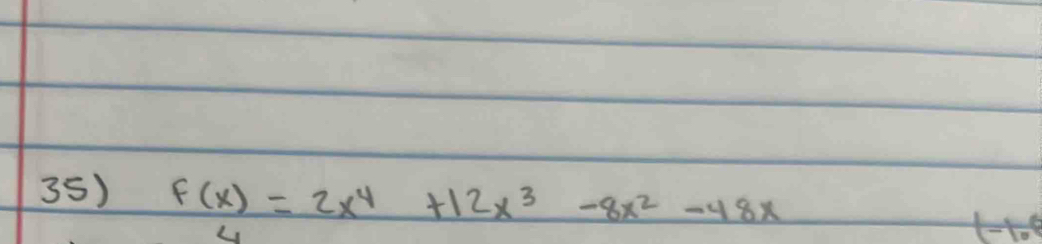 35) f(x) = 2x⁴ +12x³ -8x² -48x
4